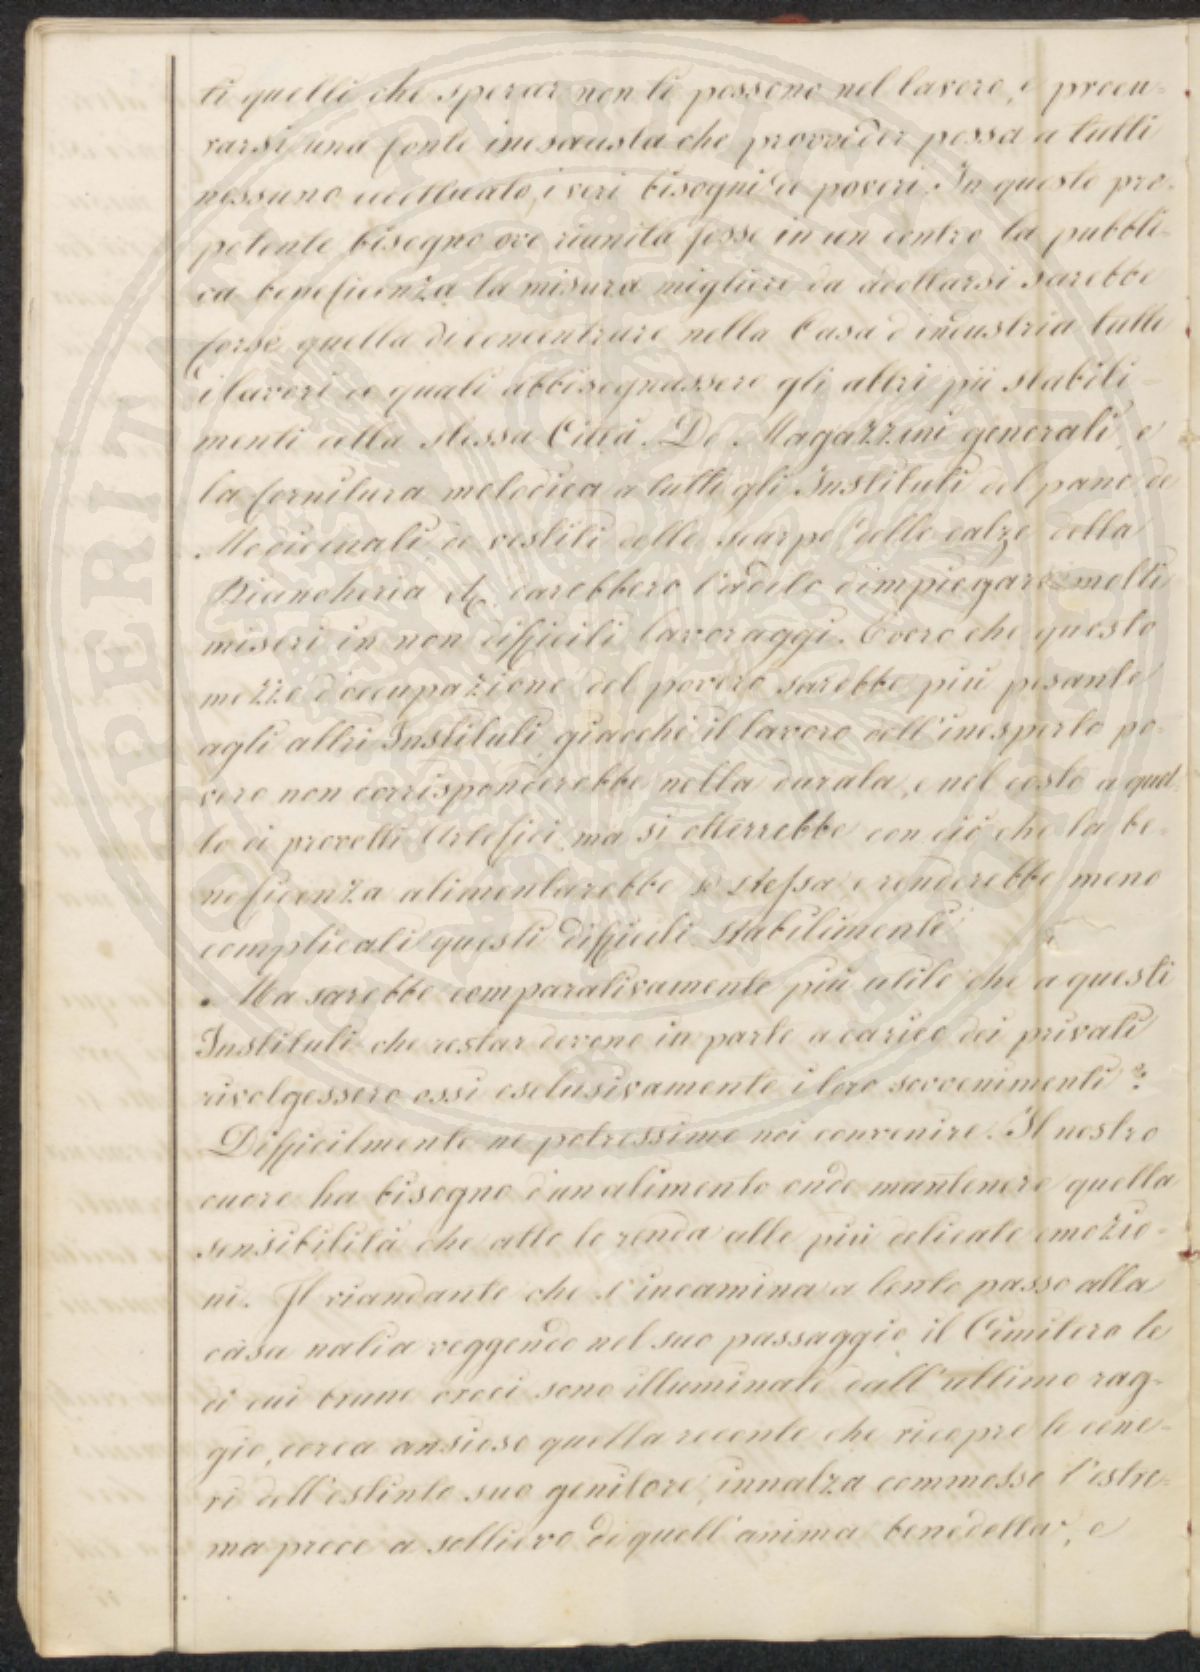 ti quelli che sperar non lo possono nel lavoro, e procu-
rarsi una fonte inesausta che provveder possa a tutti
nessuno eccettuato, i veri bisogni de poveri. In questo pre-
potente bisogno ove riunita fosse in un centro la pubbli-
ca beneficenza la misura migliore da adottarsi sarebbe
forse quella di concentrare nella Casa d'industria tutti
i lavori de quali abbisognassero gli altri pii stabili-
menti della stessa Città. De Magazzini generali, e
la fornitura metodica a tutti gli Instituti del pane de
Medicinali de vestiti delle scarpe delle calze della
Biancheria &c. darebbero l'adito d'impiegare molti
miseri in non difficili lavoraggi. È vero che questo
mezzo d'occupazione del povero sarebbe più pesante
agli altri Instituti giacchè il lavoro dell'inesperto po-
vero non corrisponderebbe nella durata, e nel costo a quel-
lo di provetti Artefici, ma si otterrebbe con ciò che la be-
neficenza alimentarebbe se stessa e renderebbe meno
complicati questi difficili stabilimenti.
Ma sarebbe comparativamente più utile che a questi
Instituti che restar devono in parte a carico dei privati
rivolgessero essi esclusivamente i loro sovvenimenti?
Difficilmente ne potressimo noi convenire. Il nostro
cuore ha bisogno d'un alimento onde mantenere quella
sensibilità che atto lo renda alle più delicate emozio-
ni. Il viandante che s'incamina a lento passo alla
casa natia veggendo nel suo passaggio il Cimitero le
di cui brune croci sono illuminate dall'ultimo rag-
gio, cerca ansioso quella recente che ricopre le cene-
ri dell'estinto suo genitore, innalza commosso l'estre-
ma prece a sollievo di quell'anima benedetta, e
SOSPERITATI PUBLICAE AUGENDAE